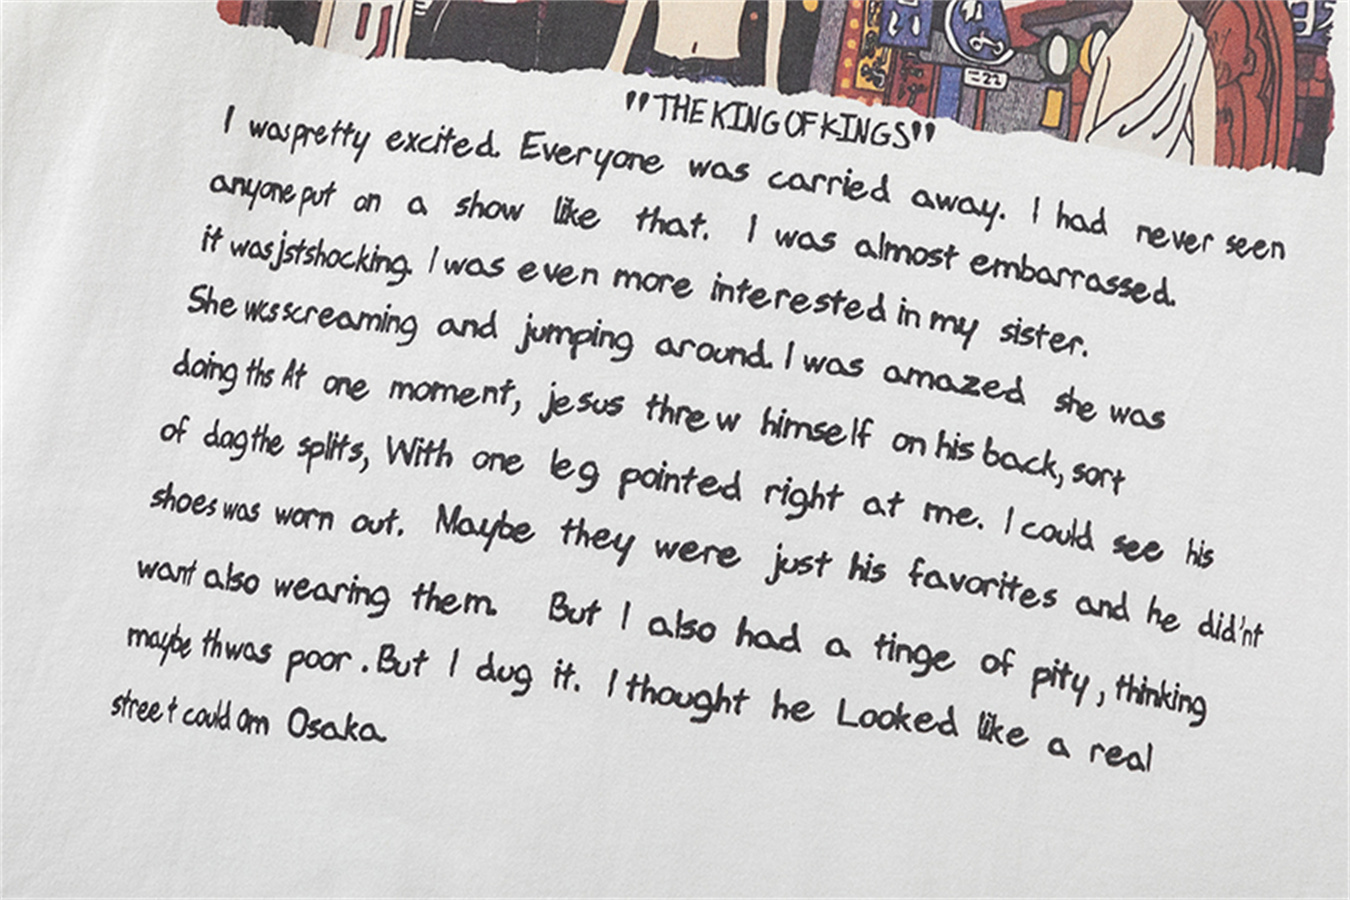 "THE KING OF KINGS"
I was pretty excited. Everyone was carried away. I had never seen
anyone put on a show like that. I was almost embarrassed.
it was jst shocking. I was even more interested in my sister.
She was screaming and jumping around. I was amazed she was
doing ths At one moment, jesus threw himself on his back, sort
of dag the splits, With one leg pointed right at me. I could see his
shoes was worn out. Maybe they were just his favorites and he did'nt
want also wearing them. But I also had a tinge of pity, thinking
maybe th was poor. But I dug it. I thought he Looked like a real
street could om Osaka
22